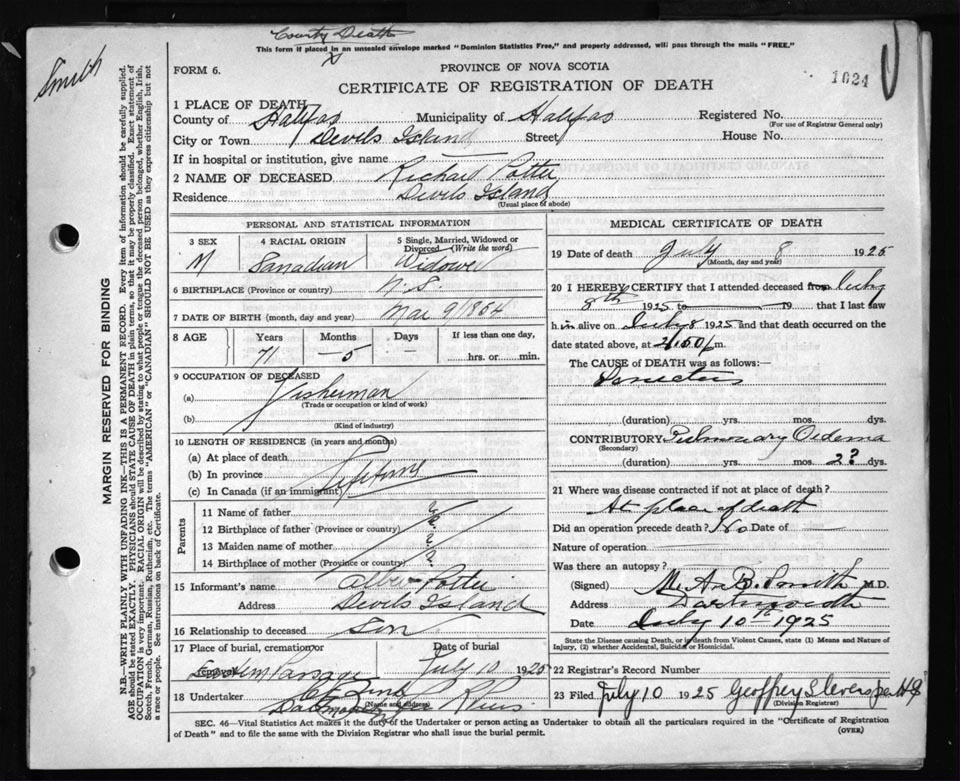 County Death
This form if placed in an unsealed envelope marked "Dominion Statistics Free," and properly addressed, will pass through the mails "FREE."
Smith
FORM 6.
PROVINCE OF NOVA SCOTIA
1624
CERTIFICATE OF REGISTRATION OF DEATH
1 PLACE OF DEATH
County of Halifax Municipality of Halifax Registered No.
(For use of Registrar General only)
City or Town Devils Island Street House No.
If in hospital or institution, give name
2 NAME OF DECEASED Richard Potter
Residence Devils Island
(Usual place of abode)
MARGIN RESERVED FOR BINDING
N.B.—WRITE PLAINLY WITH UNFADING INK—THIS IS A PERMANENT RECORD. Every item of information should be carefully supplied.
AGE should be stated EXACTLY. PHYSICIANS should STATE CAUSE OF DEATH in plain terms, so that it may be properly classified. Exact statement of
OCCUPATION is very important. RACIAL ORIGIN will be described by stating to what people or tongue the deceased person belonged, whether English, Irish,
Scotch, French, German, Russian, Ruthenish, etc. The terms "AMERICAN" or "CANADIAN" SHOULD NOT BE USED as they express citizenship but not
a race or people. See instructions on back of Certificate.
PERSONAL AND STATISTICAL INFORMATION
3 SEX
M
4 RACIAL ORIGIN
Canadian
5 Single, Married, Widowed or
Divorced (Write the word)
Widower
6 BIRTHPLACE (Province or country) N.S.
7 DATE OF BIRTH (month, day and year) Mar 9/1854
8 AGE Years Months Days If less than one day,
71 5 — hrs. or min.
9 OCCUPATION OF DECEASED
(a) Fisherman
(Trade or occupation or kind of work)
(b)
(Kind of industry)
10 LENGTH OF RESIDENCE (in years and months)
(a) At place of death
(b) In province Lifetime
(c) In Canada (if an immigrant)
Parents
11 Name of father ?
12 Birthplace of father (Province or country) ?
13 Maiden name of mother ?
14 Birthplace of mother (Province or country) ?
15 Informant's name Potter
Address Devils Island
16 Relationship to deceased Son
17 Place of burial, cremation or Date of burial
removal Passage July 10 1925
18 Undertaker
(Name and address)
MEDICAL CERTIFICATE OF DEATH
19 Date of death July 8 1925
(Month, day and year)
20 I HEREBY CERTIFY that I attended deceased from July
8th 1925 to 19 that I last saw
h im alive on July 8 1925 and that death occurred on
date stated above, at m.
The CAUSE of DEATH was as follows:
(duration) yrs. mos. dys.
CONTRIBUTORY Pulmonary Oedema
(Secondary)
(duration) yrs. mos. 2? dys.
21 Where was disease contracted if not at place of death?
At place of death
Did an operation precede death? No Date of
Nature of operation
Was there an autopsy?
(Signed) Smith M.D.
Address Dartmouth
Date July 10th 1925
State the Disease causing Death, or in death from Violent Causes, state (1) Means and Nature of
Injury, (2) whether Accidental, Suicidal or Homicidal.
22 Registrar's Record Number
23 Filed July 10 1925 Geoffrey Stevens per
(Division Registrar)
SEC. 46—Vital Statistics Act makes it the duty of the Undertaker or person acting as Undertaker to obtain all the particulars required in the "Certificate of Registration
of Death" and to file the same with the Division Registrar who shall issue the burial permit.
(OVER)